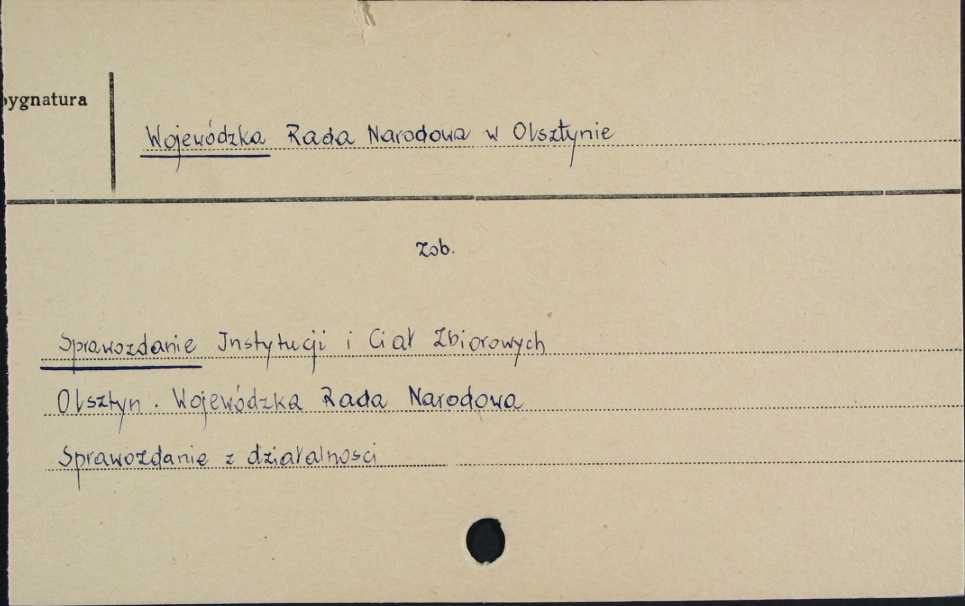 Sygnatura
Wojewódzka Rada Narodowa w Olsztynie
Zob.
Sprawozdanie Instytucji i Ciał Zbiorowych
Olsztyn. Wojewódzka Rada Narodowa
Sprawozdanie z działalności